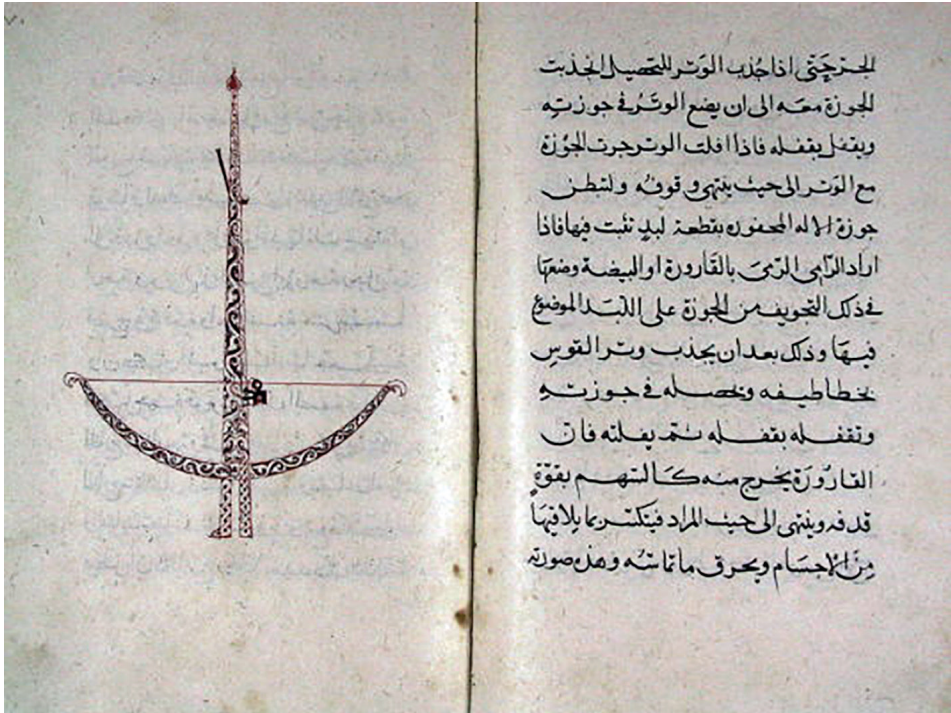 الجرحتى اذا جُذب الوتر للتحصيل انجذبت
الجوزة معه الى ان يضع الوَتَر في جوزتهِ
ويقفل بقفله فاذا افلت الوتر جرت الجوْزة
مع الوَتر الى حيث ينتهى وقوفُه ولتبطن
جوزة الاله المحفوره بقطعة لبدٍ تثبت فيها فاذا
اراد الرّامى الرّمىَ بالقارورة او البيضة وضعها
فى ذلك التجويف من الجوزة على اللّبد الموضوع
فيها وذلك بعد ان يجذب وتر القوسِ
بخطاطيفه ويحصله فى جوزتهِ
وتقفله بقفله ثم يفلته فان
القارُورَة يخرج منه كالسّهم بقوّةِ
قذفه وينتهى الى حيث المراد فيتكسّر بما يلاقيها
مِنَ الاجسام ويحرق ماتماسّه وهذه صورته